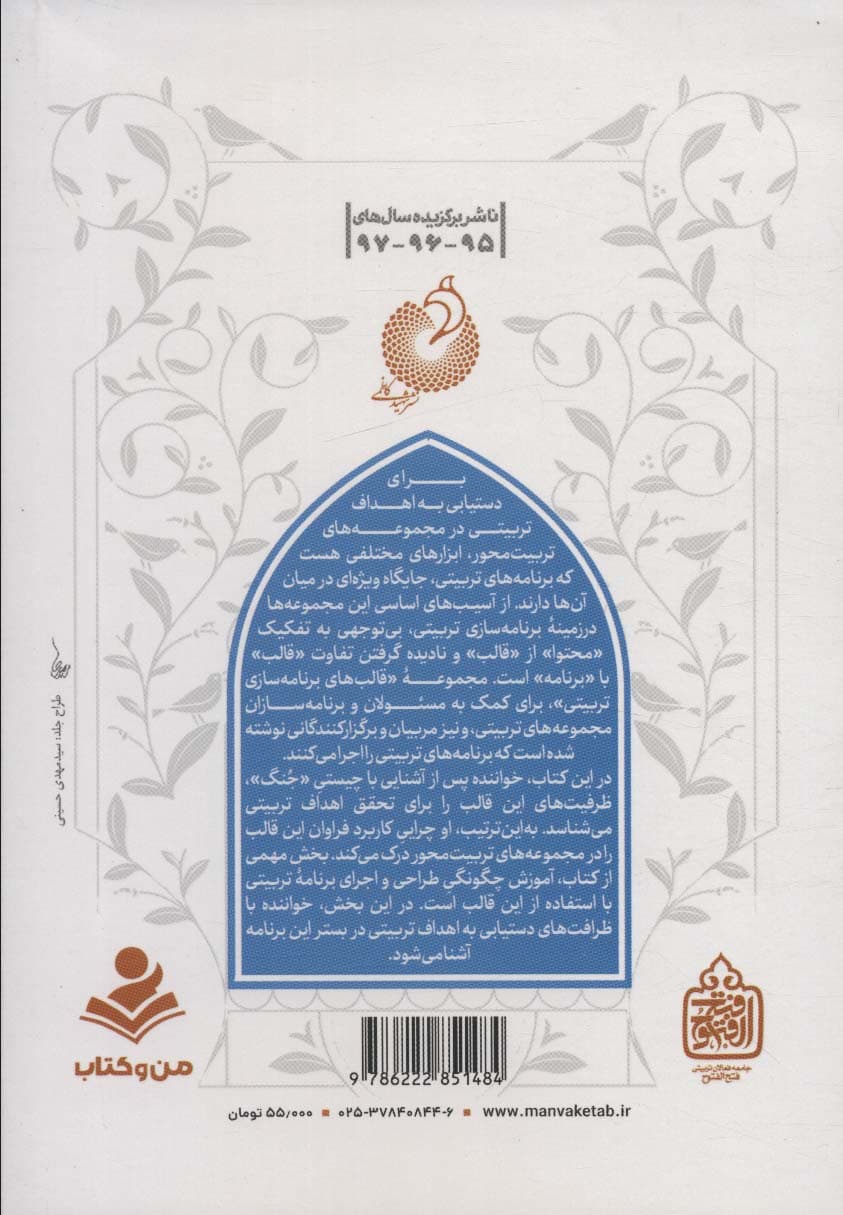 ناشر برگزیده سال‌های
۹۵-۹۶-۹۷
نشر شهید کاظمی
بـــرای
دستیابی به اهـداف
تربیتـی در مجموعـه‌هـای
تربیت‌محور، ابزارهای مختلفی هست
که برنامه‌های تربیتی، جایگاه ویژه‌ای در میان
آن‌ها دارند. از آسیب‌های اساسی این مجموعه‌ها
درزمینهٔ برنامه‌سازی تربیتی، بی‌توجهی به تفکیک
«محتوا» از «قالب» و نادیده گرفتن تفاوت «قالب»
با «برنامه» است. مجموعـهٔ «قالب‌های برنامه‌سازی
تربیتی»، برای کمک به مسئـولان و برنامه‌سـازان
مجموعه‌های تربیتی، و نیز مربیان و برگزارکنندگانی نوشته
شده است که برنامه‌های تربیتی را اجرا می‌کنند.
در این کتاب، خواننده پس از آشنایی با چیستی «جُنگ»،
ظرفیت‌های این قالب را برای تحقق اهداف تربیتی
می‌شناسد. به‌این‌ترتیب، او چراییِ کاربرد فراوان این قالب
را در مجموعه‌های تربیت‌محور درک می‌کند. بخش مهمی
از کتاب، آموزش چگونگی طراحی و اجرای برنامهٔ تربیتی
با استفاده از این قالب است. در این بخش، خواننده با
ظرافت‌های دستیابی به اهداف تربیتی در بستر این برنامه
آشنا می‌شود.
طراح جلد: سیدمهدی حسینی
فتح الفتوح
جامعه فعالان تربیتی
فتح الفتوح
من و کتاب
9 786222 851484
www.manvaketab.ir ▪ ۰۲۵-۳۷۸۴۰۸۴۴-۶ ▪ ۵۵/۰۰۰ تومان